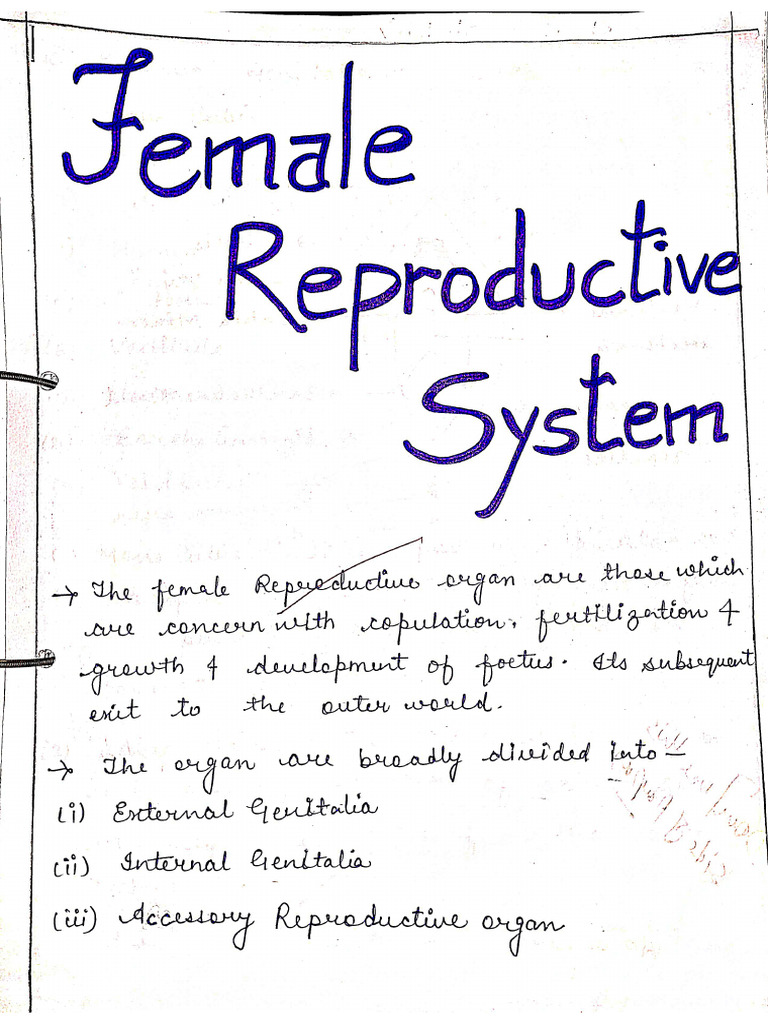 Female
Reproductive
System
→ The female Reproductive organ are those which
are concern with copulation, fertilization &
growth & development of foetus. Its subsequent
exit to the outer world.
→ The organ are broadly divided into —
(i) External Genitalia
(ii) Internal Genitalia
(iii) Accessory Reproductive organ